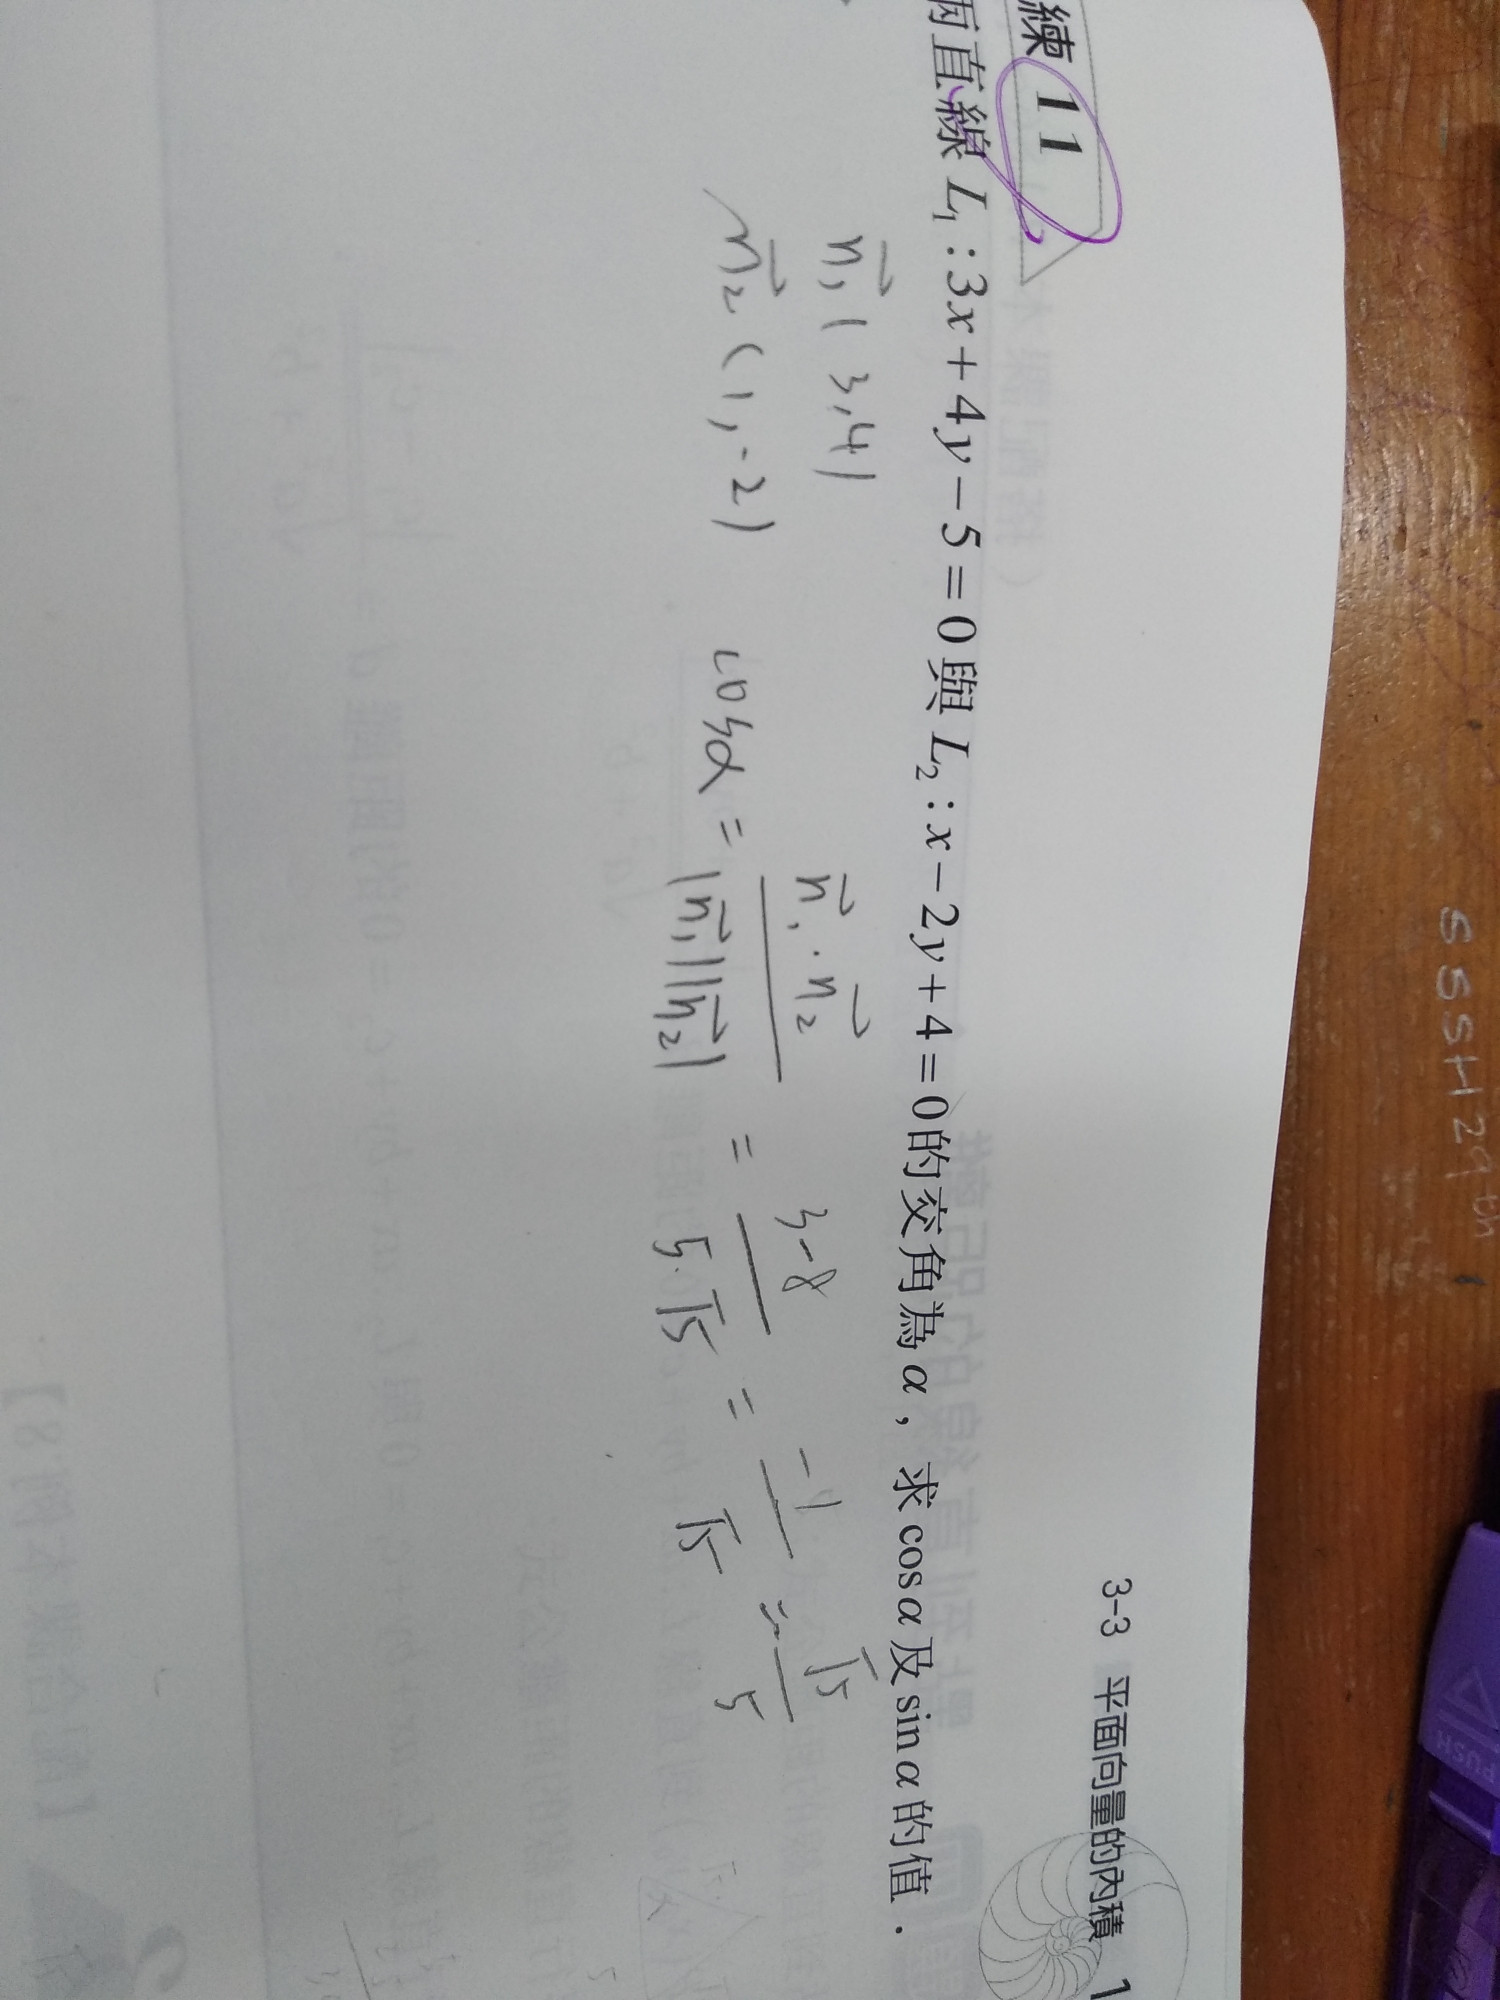 3-3 平面向量的內積 1
練 11
兩直線 L₁:3x+4y-5=0與 L₂:x-2y+4=0的交角為α,求cosα及sinα的值.
n₁⃗ ( 3,4)
n₂⃗ (1,-2)
cosα = n₁⃗·n₂⃗ / |n₁⃗||n₂⃗| = 3-8 / 5·√5 = -1 / √5 = √5 / 5
SSSH29th
PUSH